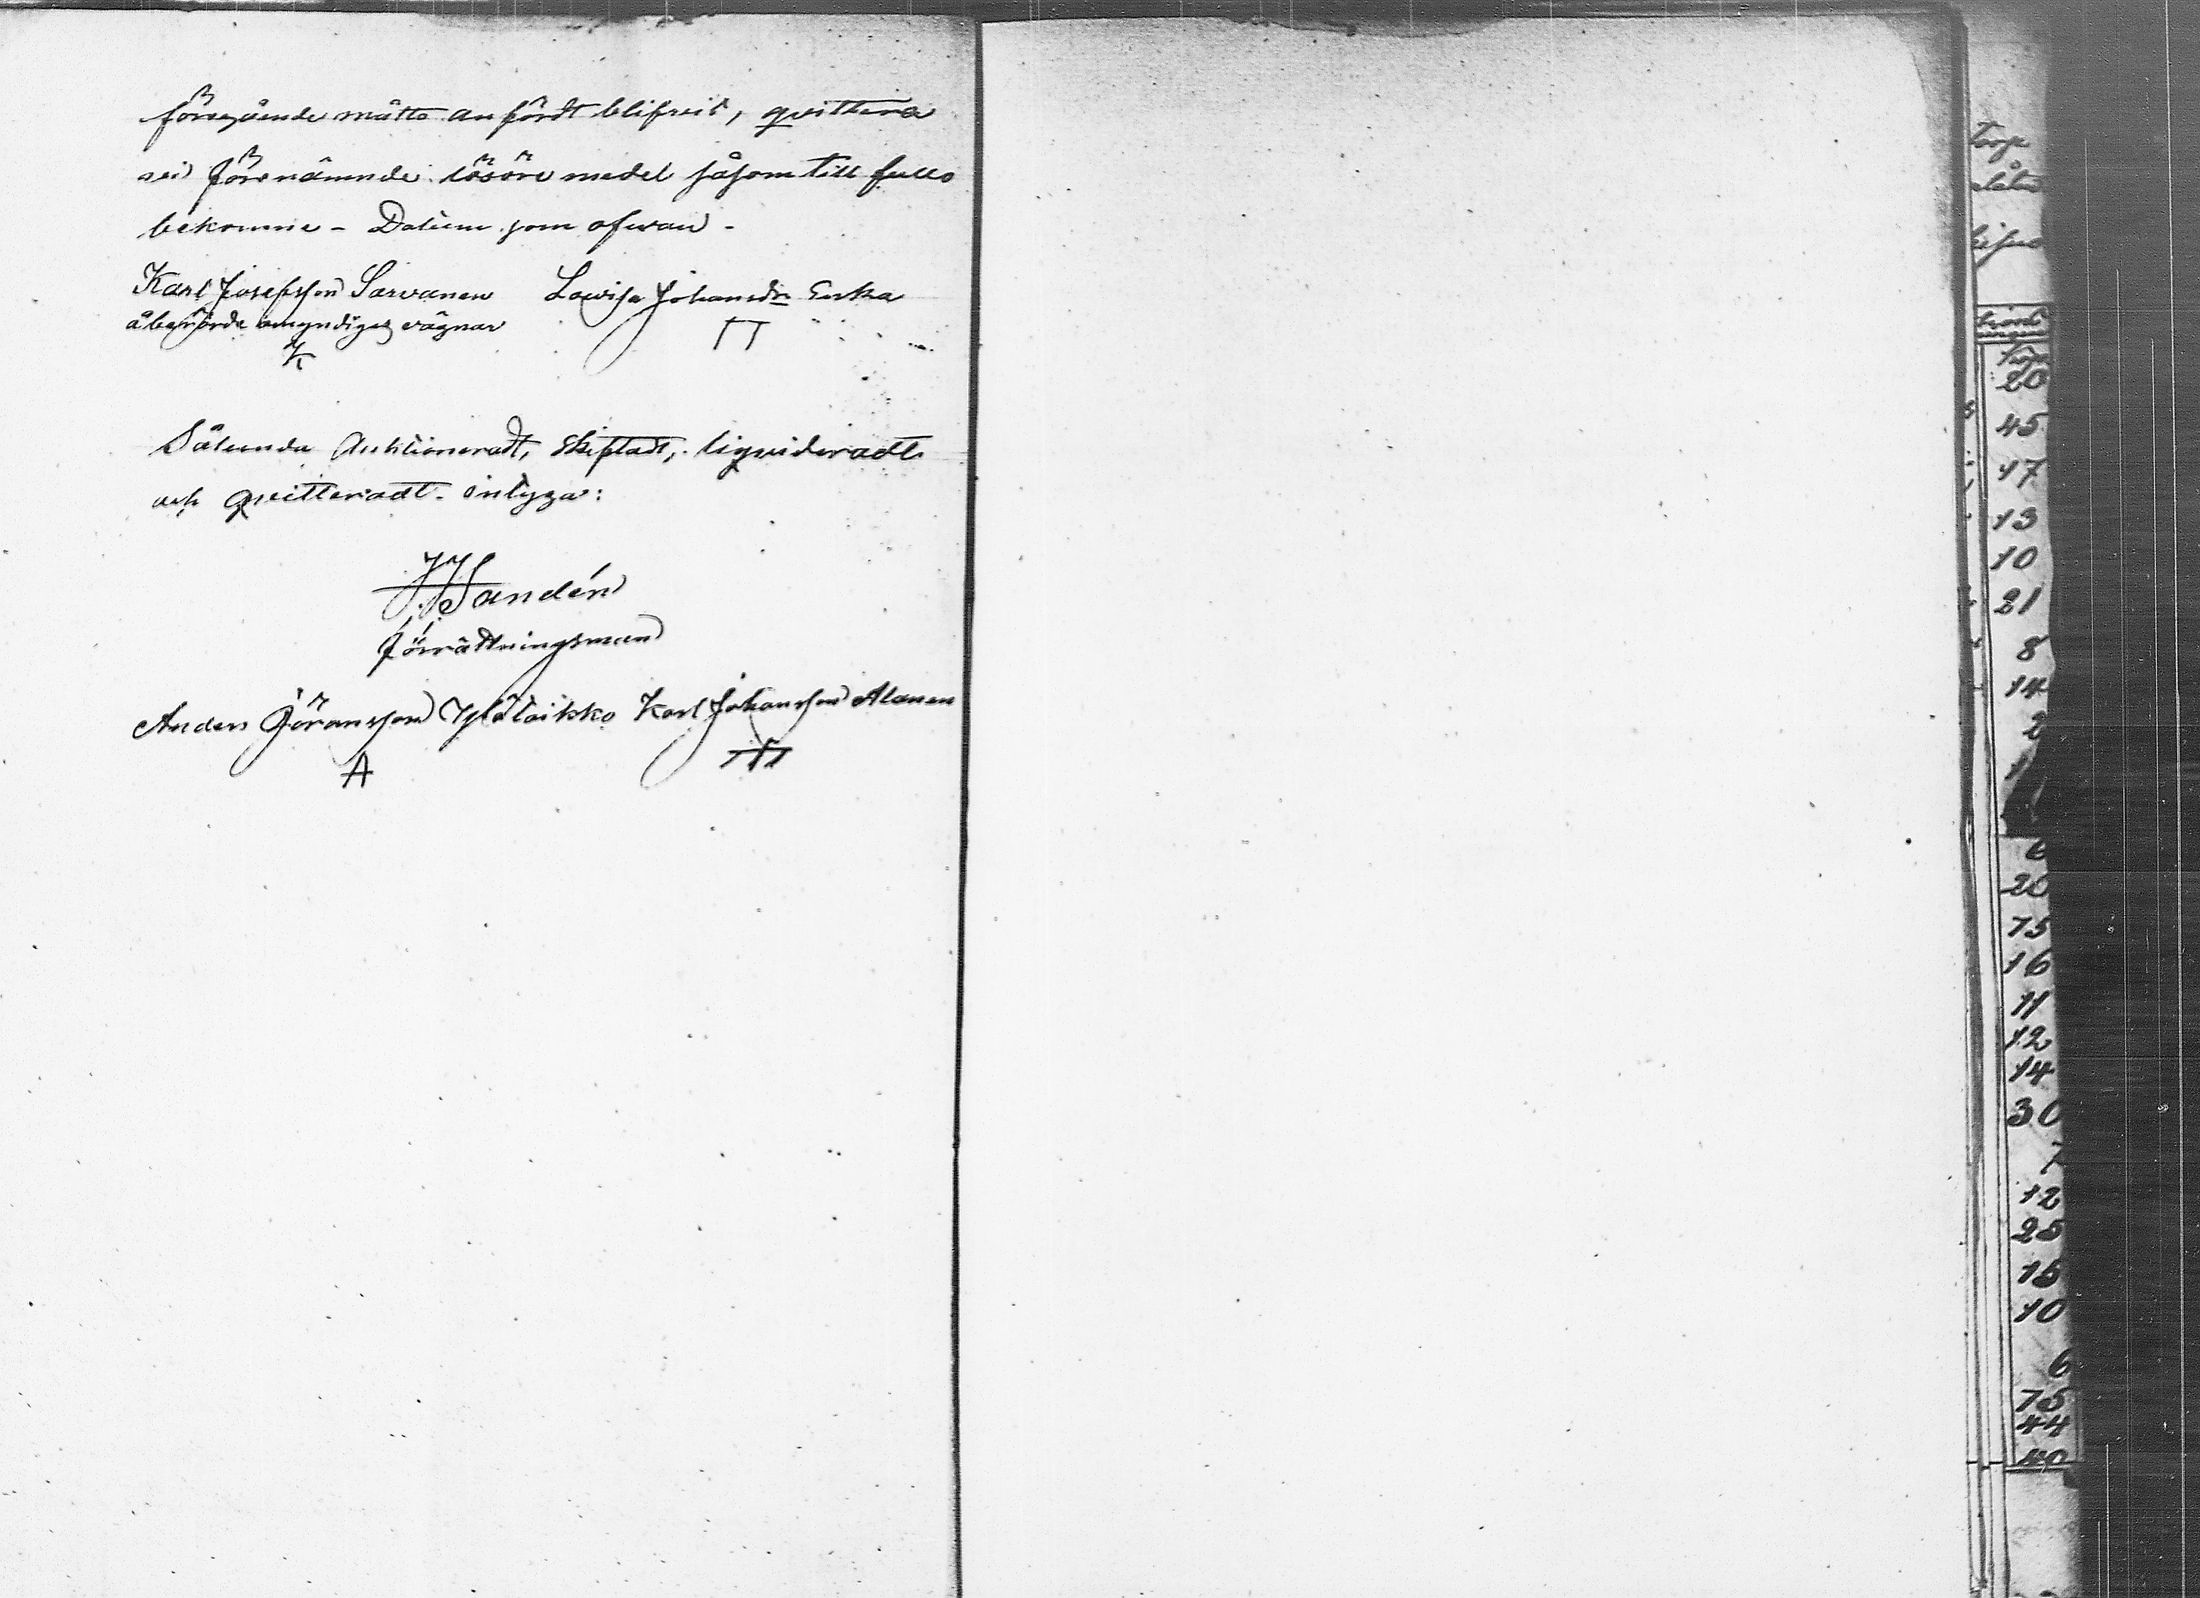 föregående måtto anfördt blifvit, qvittera
vi förenämnde lösöre medel såsom till fullo
bekomne - Datum som ofvan -
Karl Josefsson Sarvanen Lovisa Johansdr Erka
åberörde omyndiges vägnar
K
Sålunda Auktioneradt, skiftadt, liqvideradt
och qvitteradt. intyga:
JHSandén
Förrättningsman
Anders Göransson Ylötaikko Karl Johansson Alanen
A
torp
20
45
17
13
10
21
8
14
2
1
6
20
75
16
11
12
14
30
7
12
25
15
10
6
75
44
40